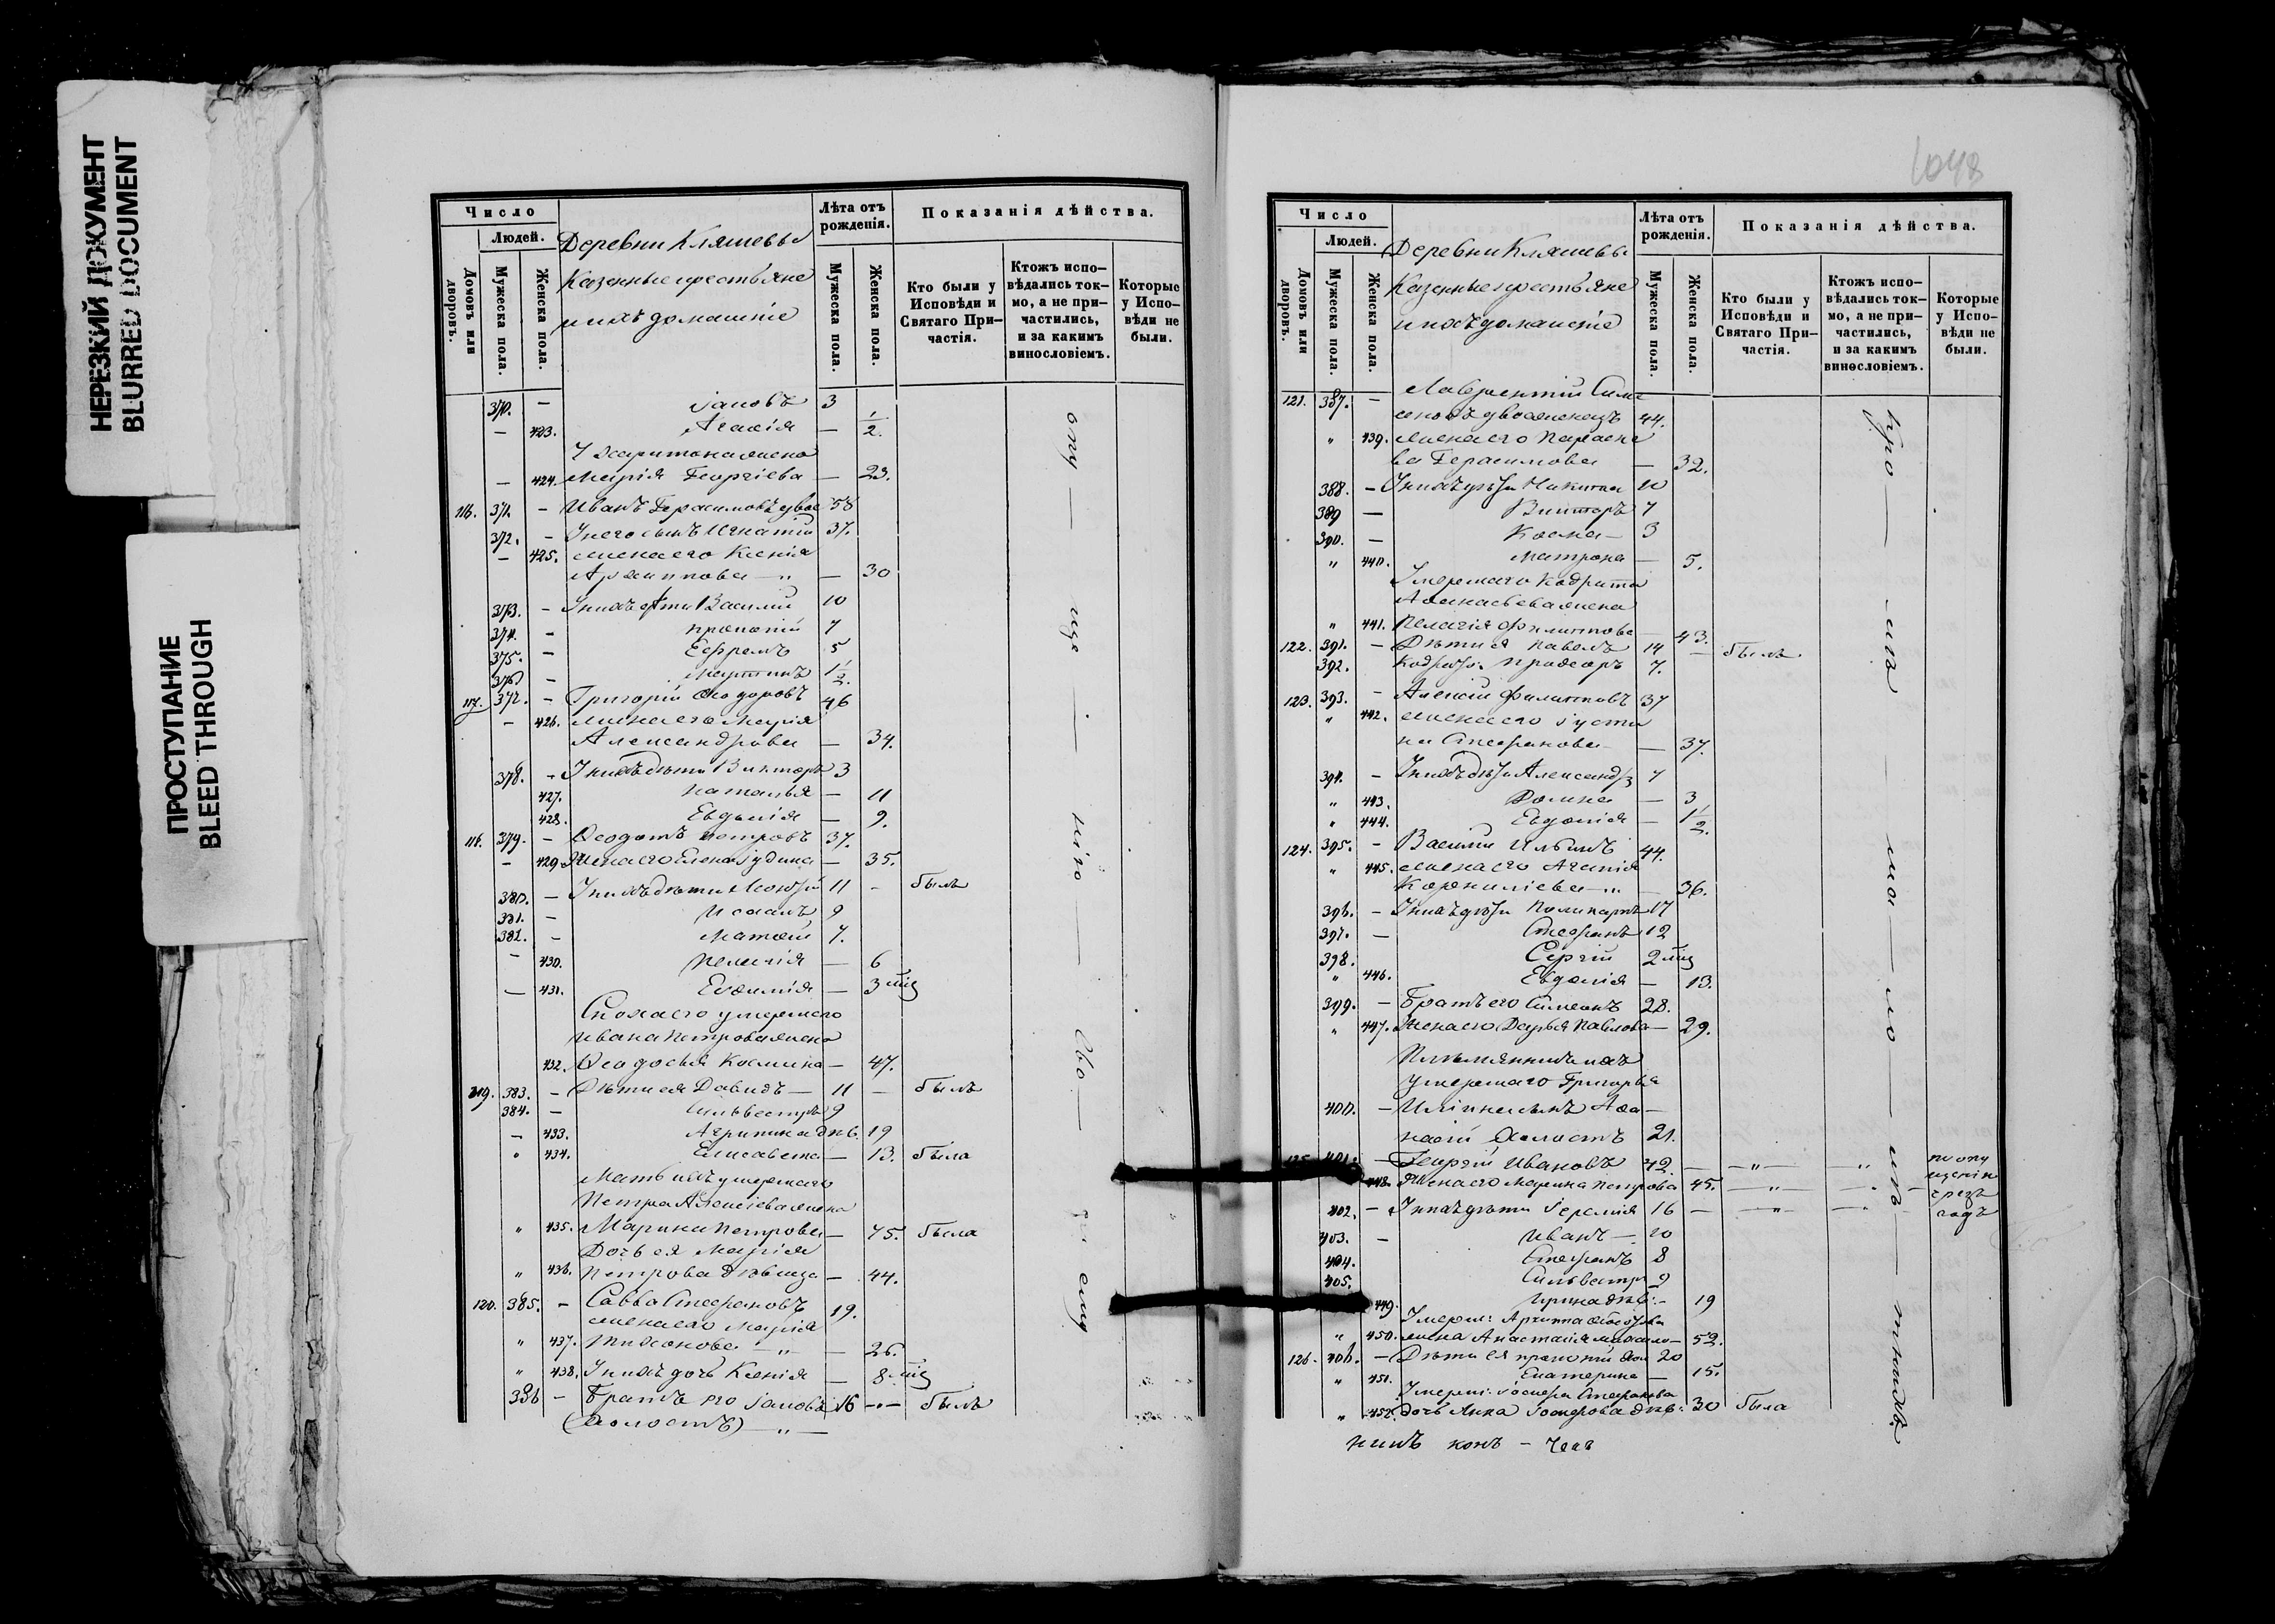 НЕРЕЗКИЙ ДОКУМЕНТ
BLURRED DOCUMENT
ПРОСТУПАНИЕ
BLEED THROUGH
Число
Людей.
Домовъ или дворовъ.
Мужеска пола.
Женска пола.
Деревни Кляшевы
Казенные крестьяне
и ихъ домашніе
Лѣта отъ рожденія.
Мужеска пола.
Женска пола.
Показанія дѣйства.
Кто были у Исповѣди и Святаго При-частія.
Ктожъ испо-вѣдались ток-мо, а не при-частились, и за какимъ винословіемъ.
Которые у Испо-вѣди не были.
370. — Іаковъ 3
— 423. Агафія — 1/2.
У Харитона жена
— 424. Марія Георгіева — 23.
116. 371. — Иванъ Герасимовъ вдов 58
372. — У него сынъ Игнатій 37.
— 425. жена его Ксенія
Архиппова — " — 30
373. — У нихъ дѣти Василій 10
374. — Прокопій 7
375. — Ефремъ 5
376. — Мартинъ 1 1/2.
117. 377. — Григорій Ѳеодоровъ 46
— 426. жена его Марія
Александрова — 34.
378. — У нихъ дѣти Викторъ 3
427. Наталья — 11
428. Евдокія — 9.
118. 379. — Ѳеодотъ Петровъ 37.
— 429. Жена его Елена Іудина — 35.
380. — У нихъ дѣти 11 — былъ
381. — Исаакъ 9
382. — Матѳій 7.
— 430. Пелагія — 6
— 431. Евѳимія — 3 мѣс
Сноха его умершаго
Ивана Петрова жена
432. Ѳеодосья Космина — 47.
119. 383. — Дѣти ея Давидъ — 11 — былъ
384. — Сильвестръ 9
— 433. Агрипина дѣв. 19
" 434. Елисавета — 13. была
Мать ихъ умершаго
Петра Алексіева жена
" 435. Марина Петрова — 75. была
Дочь ея Марія
" 436. Петрова дѣвица — 44.
120. 385. — Савва Стефановъ 19.
жена его Марія
" 437. Тихонова — " — 26.
" 438. У нихъ дочь Ксенія — 8 мѣс
386 — Братъ его Іаковъ 16 — " — былъ
(холостъ) — " —
опу — ще — . — нію — сво — ему
1048
Число
Людей.
Домовъ или дворовъ.
Мужеска пола.
Женска пола.
Деревни Кляшевы
Казенные крестьяне
и ихъ домашніе
Лѣта отъ рожденія.
Мужеска пола.
Женска пола.
Показанія дѣйства.
Кто были у Исповѣди и Святаго При-частія.
Ктожъ испо-вѣдались ток-мо, а не при-частились, и за какимъ винословіемъ.
Которые у Испо-вѣди не были.
121. 387. — Лаврентій Симе
оновъ двоеженецъ 44.
" 439. жена его Параске
ва Герасимова — 32.
388. — У нихъ дѣти Никита 10
389 — Викторъ 7
390. — Косма — 3
" 440. Матрона — 5.
Умершаго Кодрата
Аѳанасьева жена
" 441. Пелагія Филиппова — 43.
122. 391. — Дѣти ея Павелъ 14 — былъ
392. 7.
123. 393. — Алексій Филипповъ 37
" 442. жена его Іусти
на Стефанова — 37.
394. — У нихъ дѣти Александръ 7
" 443. Домна — 3
" 444. Евдокія — 1 1/2.
124. 395. — Василій Ильинъ 44.
" 445. жена его Агафія
Корниліева — " — 36.
396. — У нихъ дѣти Поликарпъ 17
397. — Стефанъ 12
398. Сергій 2 мѣс
" 446. Евдокія — 13.
399. — Братъ его Симеонъ 28.
" 447. Жена его Дарья Павлова — 29.
Племянникъ ихъ
умершаго Григорья
400. — Ильина сынъ Аѳа —
насій холостъ 21.
125. 401. — Георгій Ивановъ 42. — — " — " по опу
448. Жена его Марина Петрова 45. — " — щенію
402. — У нихъ дѣти Іеремія 16 — — " — чрезъ годъ
403. — Иванъ — 10
404. Стефанъ 8
405. Сильвестръ 2
449. Ирина дѣв: — 19
Умерш: Архиппа
" 450. жена Анастасія — 52.
126. 406. — Дѣти ея Прокопій хол 20
" 451. Екатерина — 15.
Умерш: Іосифа Стефанова
" 452. дочь Анна Іосифова дѣв: 30 была